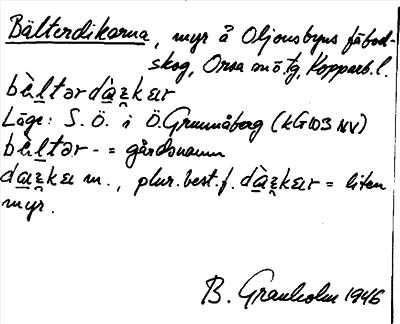 Bälterdikarna, myr å Oljonsbyns fäbod-
skog, Orsa mötg, Kopparb. l.
bɛ̀ltərdàɪ̯kɛɪr
Läge: S. Ö. i Ö. Grunnåberg (KG103 NV)
bɛ̀ltər- = gårdsnamn
m., plur. best. f. = liten
myr.
B. Granholm 1946